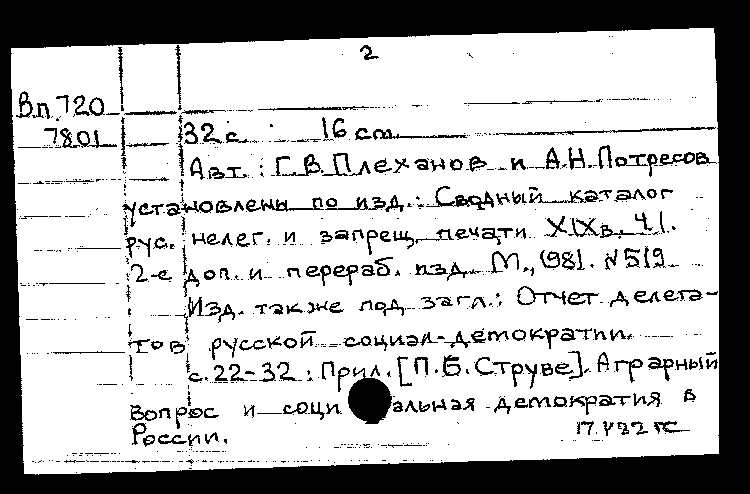 2
Вп.720
7801 32 с. 16 cm.
Авт.: Г.В.Плеханов и А.Н.Потресов
установлены по изд.: Сводный каталог
рус. нелег. и запрещ. печати XIXв. Ч.I.
2-е доп. и перераб. изд. М., 1981. №519
Изд. также под загл.: Отчет делега-
тов русской социал-демократии.
с.22-32: Прил. [П.Б.Струве]. Аграрный
вопрос и социальная демократия в
России.